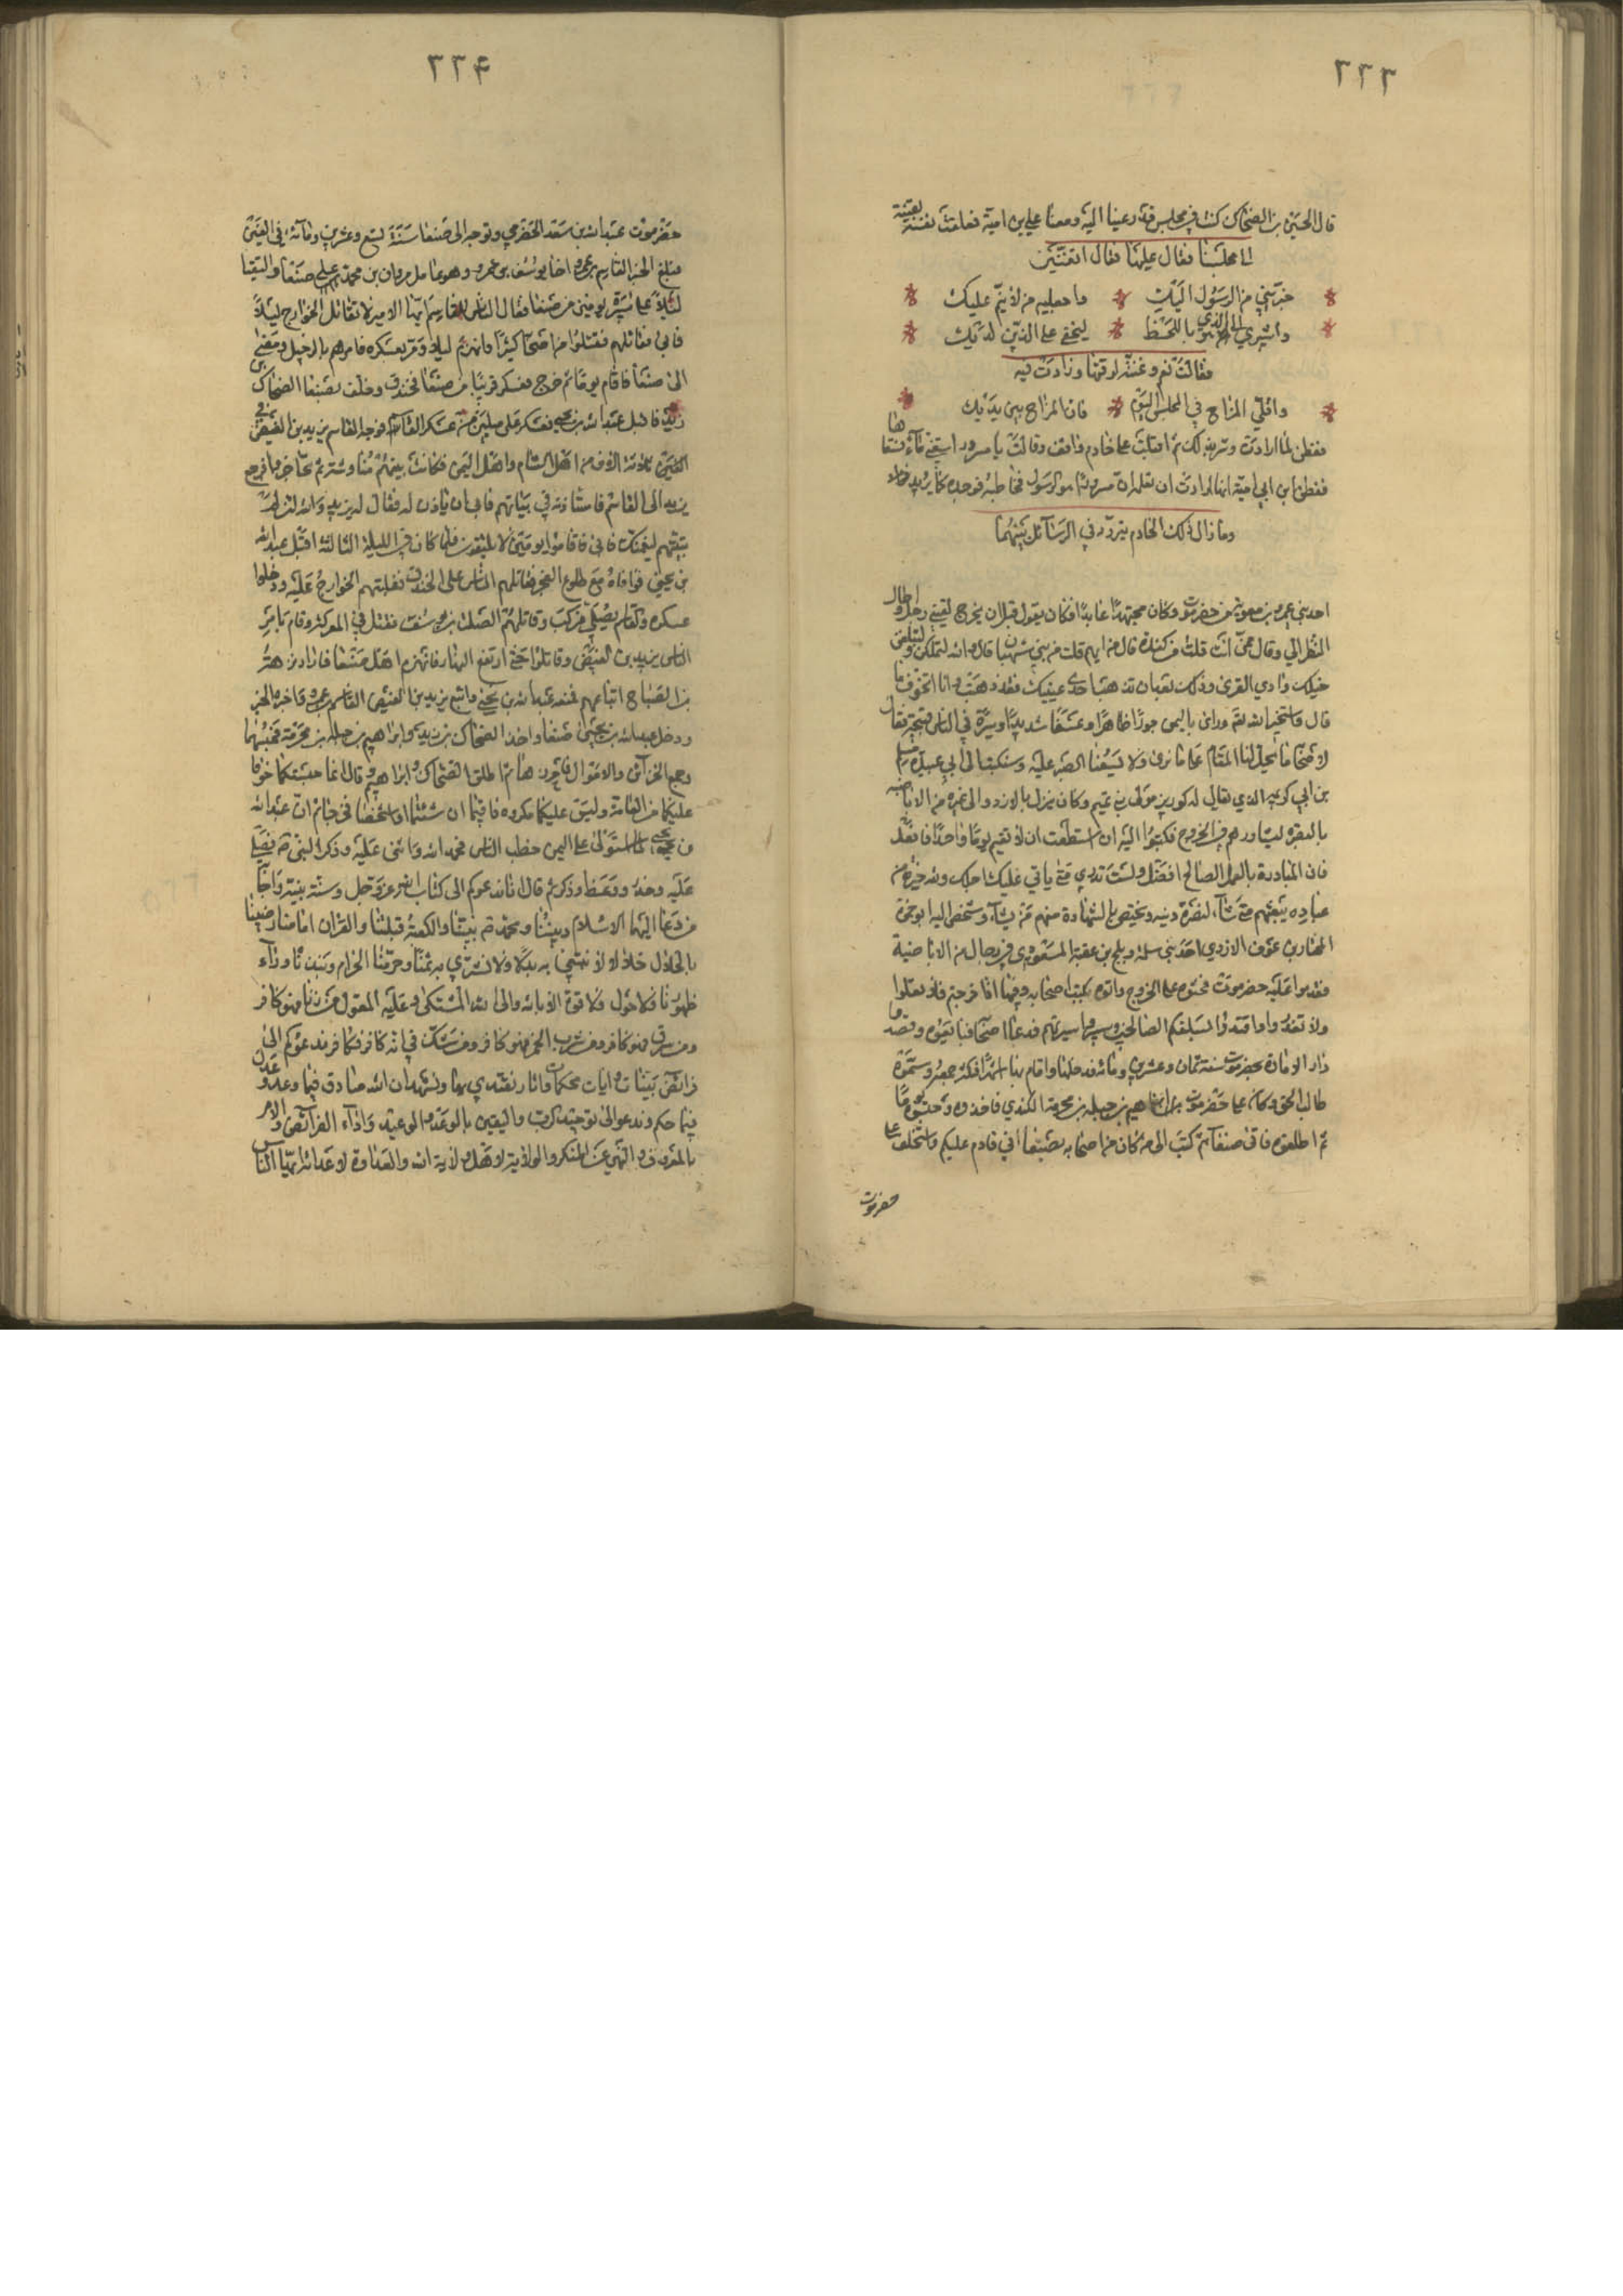 ٢٢٣
قال الحسين بن الضحاك كنا في مجلس قد دعينا اليه ومعنا علي بن امية فعلقت نفسه بقينة
في مجلسنا فقال عليها فقال اتغنين
خبريني من الرسول اليك واجعليه من لا ينم عليك
واشيري الي الذي هو باللحظ ليخفى على الذين لديك
فقالت نعم وغنته لوقتها وزادت فيه
واقلي المزاح في المجلس اليوم فان المزاح بين يديك
ففطن لما ارادت وسر بذلك ثم اقبلت على خادم واقف وقالت يا مسرور اسقني فسقاها
ففطن ابن ابي امية انها ارادت ان تعلمه ان مسرورا هو الرسول فخاطبه فوجده كما يريد
وما زال ذلك الخادم يتردد في الرسائل بينهما
احد بني عمرو بن معوية من حضرموت وكان مجتهدا عابدا وكان يقول قبل ان يخرج لقيني رجل واطال
النظر الي وقال ممن أنت قلت من كندة قال من ايهم قلت من بني شيطان قال والله لتملكن ولتبلغن
خيلك وادي القرى وذلك بعد ان تذهب احدى عينيك فقد ذهبت وانا اتخوف ما
قال واستخير الله ثم وراى باليمن جورا ظاهرا وعسفا شديدا وسيرة في الناس قبيحة فقال
لاصحابه ما يحل لنا المقام على ما نرى ولا يسعنا الصبر عليه وكتب الى ابي عبيدة مسلم
بن ابي كريمة الذي يقال له كورين مولى بني تميم وكان ينزل بالازد والى غيره من الاباضية
بالبصرة ليشاورهم في الخروج فكتبوا اليه ان استطعت ان لا تقيم يوما واحدا فافعل
فان المبادرة بالعمل الصالح افضل ولست تدري متى ياتي عليك اجلك ولله خيرة من
عباده يبعثهم متى شاء لنصرة دينه ويختص بالشهادة منهم من يشاء وشخص اليه ابو حمزة
المختار بن عوف الازدي احد بني سلمة وبلج بن عقبة المسعودي في رجال من الاباضية
فقدموا عليه حضرموت فحثوه على الخروج واتوه بكتب اصحابه وفيها اذا خرجتم فلا تغلوا
ولا تغدروا واقتدوا بسلفكم الصالحين وسيروا سيرتهم فدعا اصحابه فبايعوه وقصدوا
دار الامارة بحضرموت سنة ثمان وعشرين ومائة فدخلها واقام بها اشهرا فكثر جمعه وسموه
طالب الحق وكان على حضرموت ابراهيم بن جبلة بن مخرمة الكندي فاخذوه وحبسوه يوما
ثم اطلقوه فاتى صنعاء ثم كتب الى من كان من اصحابه بصنعاء اني قادم عليكم واستخلف على
حضرموت
٢٢٤
حضرموت عبد الله بن سعد الحضرمي وتوجه الى صنعا سنة تسع وعشرين ومائة في الفين
فبلغ الخبر القاسم بن عمرو اخا يوسف بن عمرو وهو عامل مروان بن محمد على صنعا والتقيا
ليلا على مسيرة يومين من صنعا فقال الناس للقاسم ايها الامير لا تقاتل الخوارج ليلا
فابى فقاتلهم فقتلوا من اصحابه كثيرا وانهزم ليلا ومر بعسكره فامرهم بالرحيل ومضى
الى صنعا فاقام يوما ثم خرج فعسكر قريبا من صنعا فخندق وخلف بصنعا الضحاك بن
زيد فاقبل عبد الله بن يحيى فعسكر على ميلين من عسكر القاسم فوجه القاسم يزيد بن الفيض في
ثلاثة الاف من اهل الشام واهل اليمن فكانت بينهم مناوشة ثم تحاجزوا فرجع
يزيد الى القاسم فاستاذنه في بياتهم فابى ان ياذن له فقال له يزيد والله لئن لم
تبيتهم ليغمنك فابى فاقاموا يومين لا يلتقون فلما كان في الليلة الثالثة اقبل عبد الله
بن يحيى فوافاه مع طلوع الفجر فقاتلهم الناس على الخندق فغلبتهم الخوارج عليه ودخلوا
عسكره والقاسم يصلي فركب وقاتلهم الصلت بن يوسف فقتل في المعركة وقام بامر
الناس يزيد بن الفيض وقاتلوا حتى ارتفع النهار فانهزم اهل صنعا فاراد ابرهة
بن الصباح اتباعهم فمنعه عبد الله بن يحيى واتبع يزيد بن الفيض القاسم بن عمرو فاخبره الخبر
ودخل عبد الله بن يحيى صنعا واخذ الضحاك بن زيد وابراهيم بن جبلة بن مخرمة فحبسهما
وجمع الخزائن والاموال فاحرزها ثم اطلق الضحاك وابراهيم وقال انما حبستكما خوفا
عليكما من العامة وليس عليكما مكروه فاقيما ان شئتما او اشخصا فخرجا ثم ان عبد الله
بن يحيى لما استولى على اليمن خطب الناس فحمد الله واثنى عليه وذكر النبي صلى
عليه وحذر ووعظ وذكر ثم قال انا ندعوكم الى كتاب الله عز وجل وسنة نبيه واجابة
من دعا اليهما الاسلام ديننا ومحمد نبينا والكعبة قبلتنا والقران امامنا رضينا
بالحلال حلالا لا نبتغي به بدلا ولا نشتري به ثمنا وحرمنا الحرام ونبذناه وراء
ظهورنا فلا حول ولا قوة الا بالله والى الله المشتكى وعليه المعول من زنا فهو كافر
ومن سرق فهو كافر ومن شرب الخمر فهو كافر ومن شك في انه كافر فهو كافر ندعوكم الى
فرائض بينات وايات محكمات واثار نقتدي بها ونشهد ان الله صادق فيما وعد وعدل
فيما حكم وندعو الى توحيد الرب واليقين بالوعد والوعيد واداء الفرائض والامر
بالمعروف والنهي عن المنكر والولاية لاهل ولاية الله والعداوة لاعدائه ايها الناس